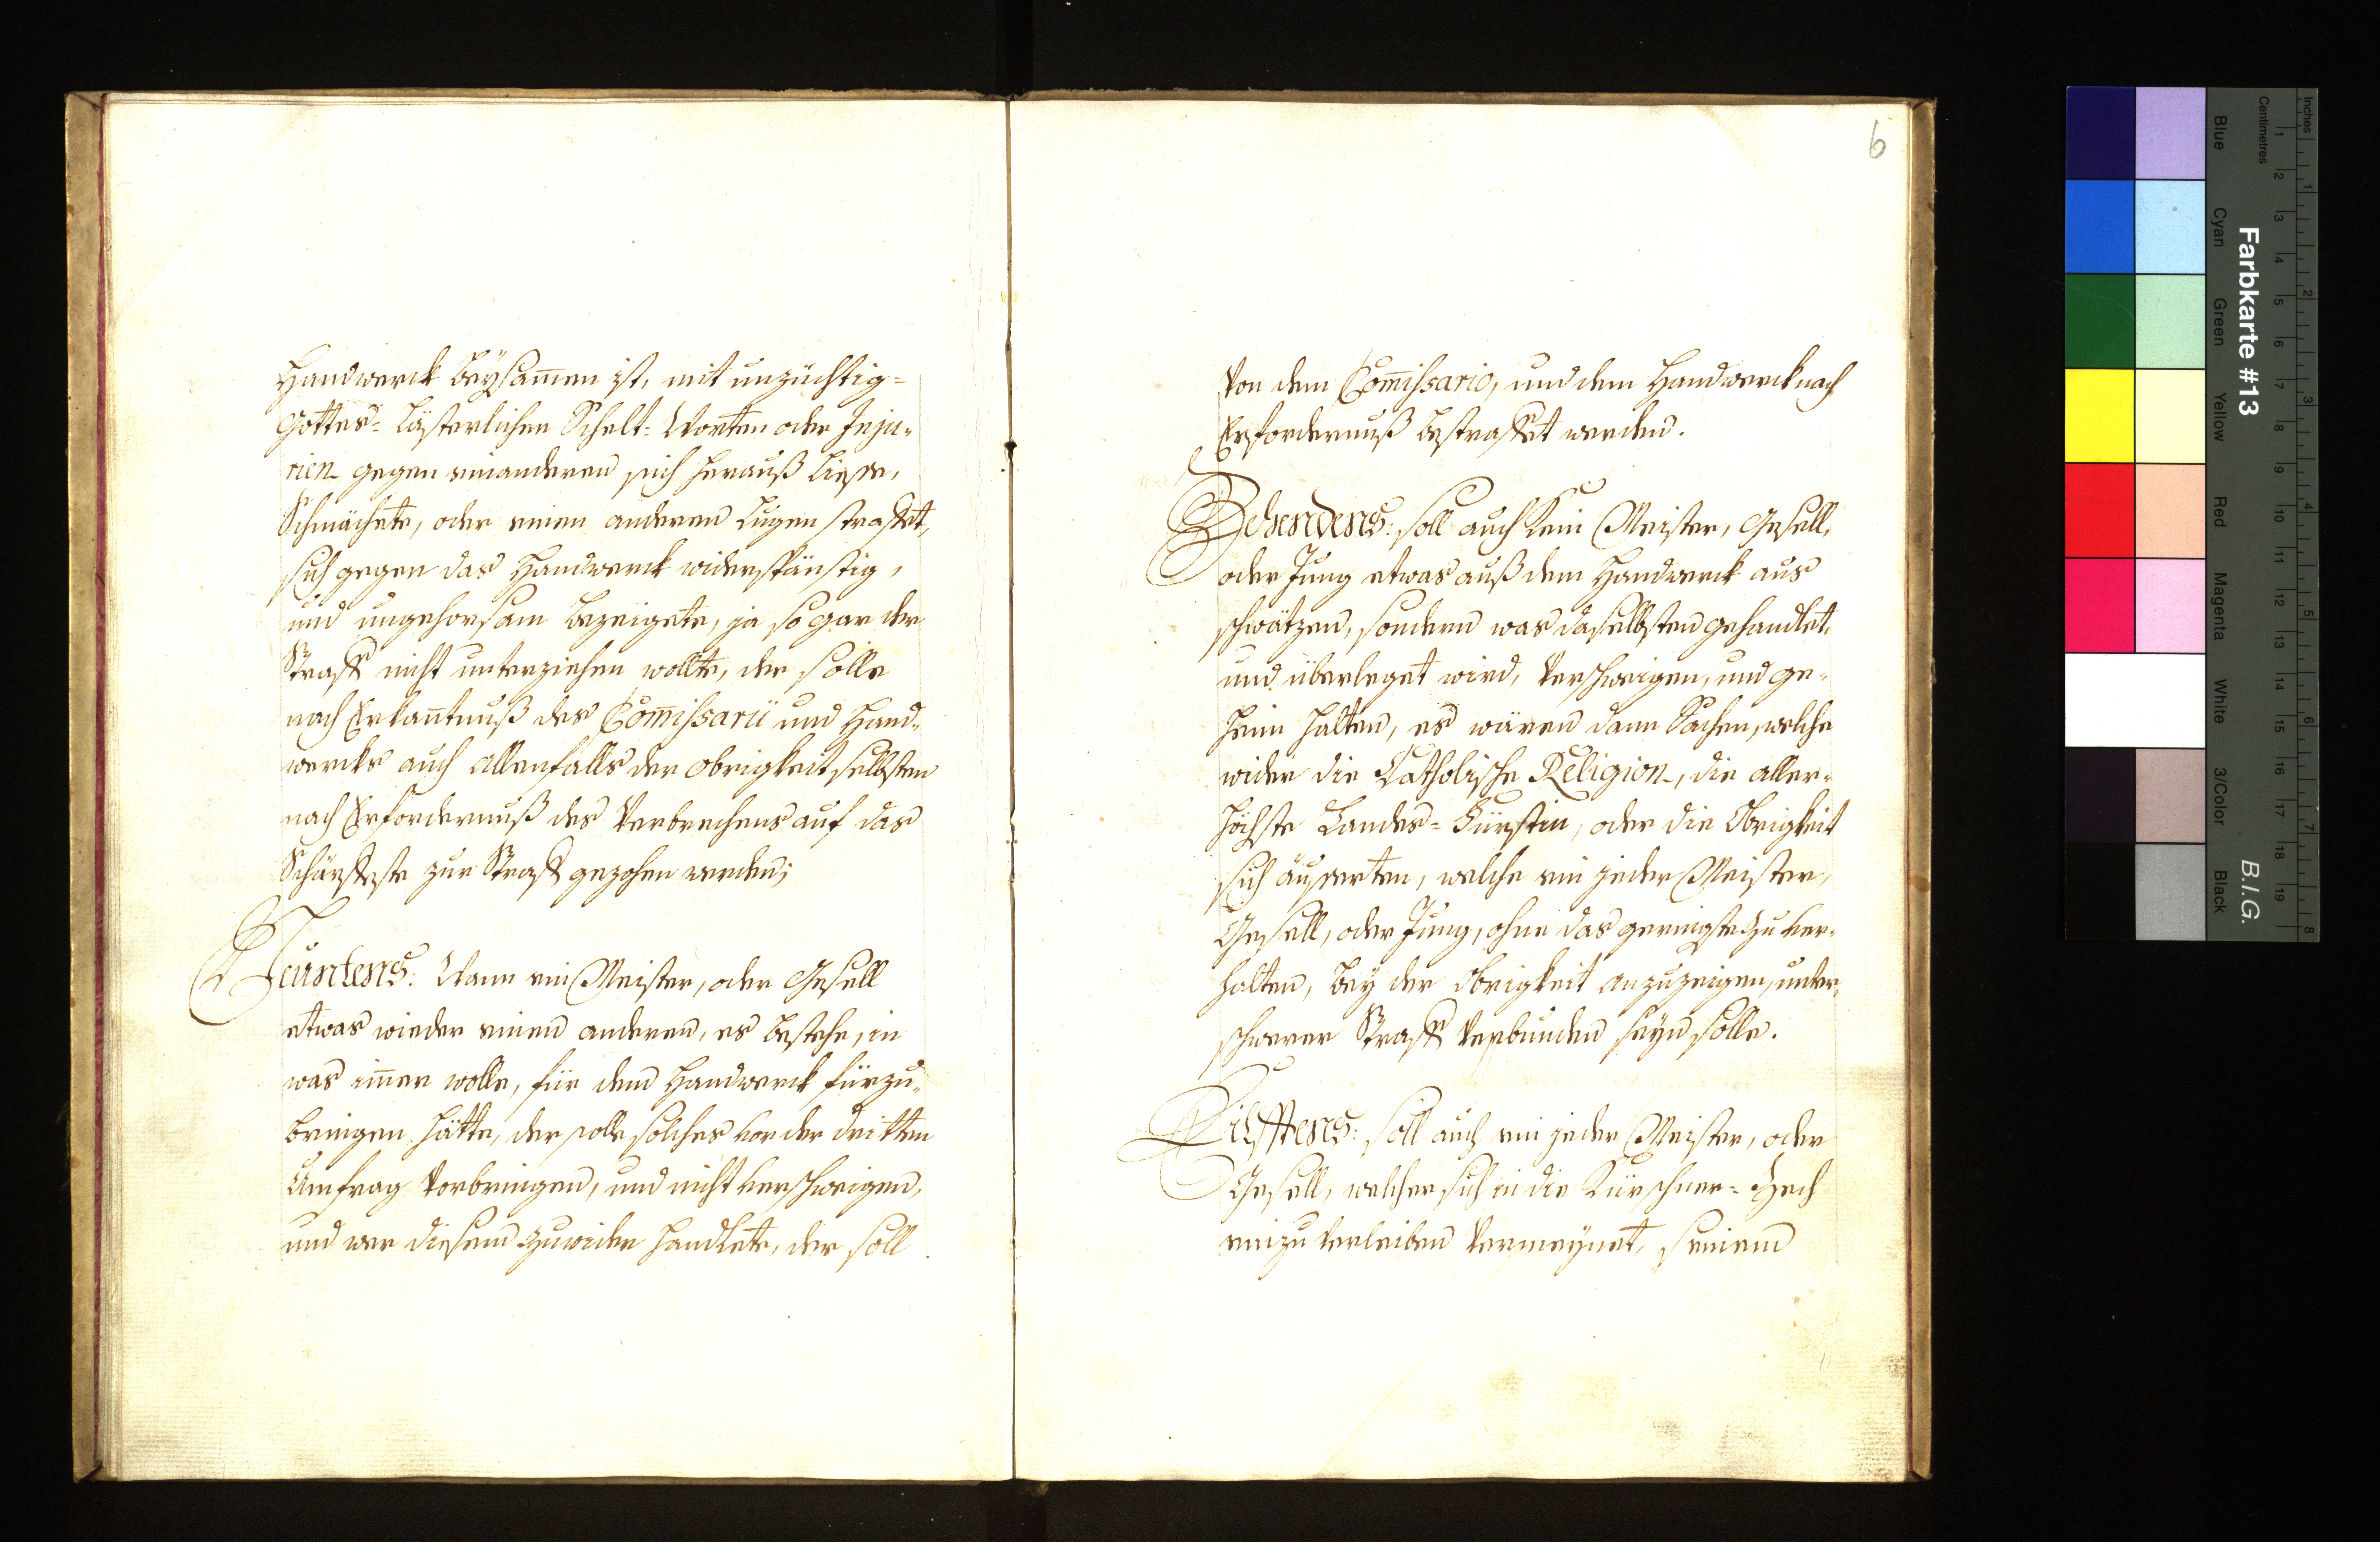 Handwerck beysam̄en ist, mit unzüchtig=
Gottes= lästerlichen Schelt= Worten oder Inju=
rien gegen einanderen sich herauß liesse,
Schmächete, oder einen anderen Lugen straffet,
sich gegen das Handwerck widerspänstig,
und ungehorsam bezeigete, ja so gar der
Straff nicht unterziehen wollte, der solle
nach Erkan̄tnuß des Com̄issarii und Hand=
wercks auch allenfalls der Obrigkeit selbsten
nach Erfordernuß des Verbrechens auf das
Schärffeste zur Straff gezohen werden;
Neuntens: Wann ein Meister, oder Gesell
etwas wieder einen anderen, es bestehe, in
was im̄er wolle, für dem Handwerck fürzu=
bringen hätte, der solle solches vor der dritten
Umfrag vorbringen, und nicht verschweigen,
und wer diesem zuwider handlete, der soll
6
von dem Com̄issario, und dem Handwerck nach
Erfordernuß bestraffet werden.
Zehendens: soll auch kein Meister, Gesell,
oder Jung etwas auß dem Handwerck aus
schwätzen, sondern was daselbsten gehandlet,
und überleget wird, verschweigen, und ge=
heim halten, es wären dann Sachen, welche
wider die Catholische Religion, die aller=
höchste Landes= Fürstin, oder die Obrigkeit
sich äusserten, welche ein jeder Meister,
Gesell, oder Jung, ohne das geringste zu ver=
halten, bey der Obrigkeit anzuzeigen, unter
schwerer Straff verbunden seyn solle.
Eilfftens: soll auch ein jeder Meister, oder
Gesell, welcher sich in die Kürschner= Zech
einzu verleiben vermeynet, seinem
Farbkarte #13
B.I.G.
Inches
Centimetres
1 2 3 4 5 6 7 8
1 2 3 4 5 6 7 8 9 10 11 12 13 14 15 16 17 18 19
Blue
Cyan
Green
Yellow
Red
Magenta
White
3/Color
Black